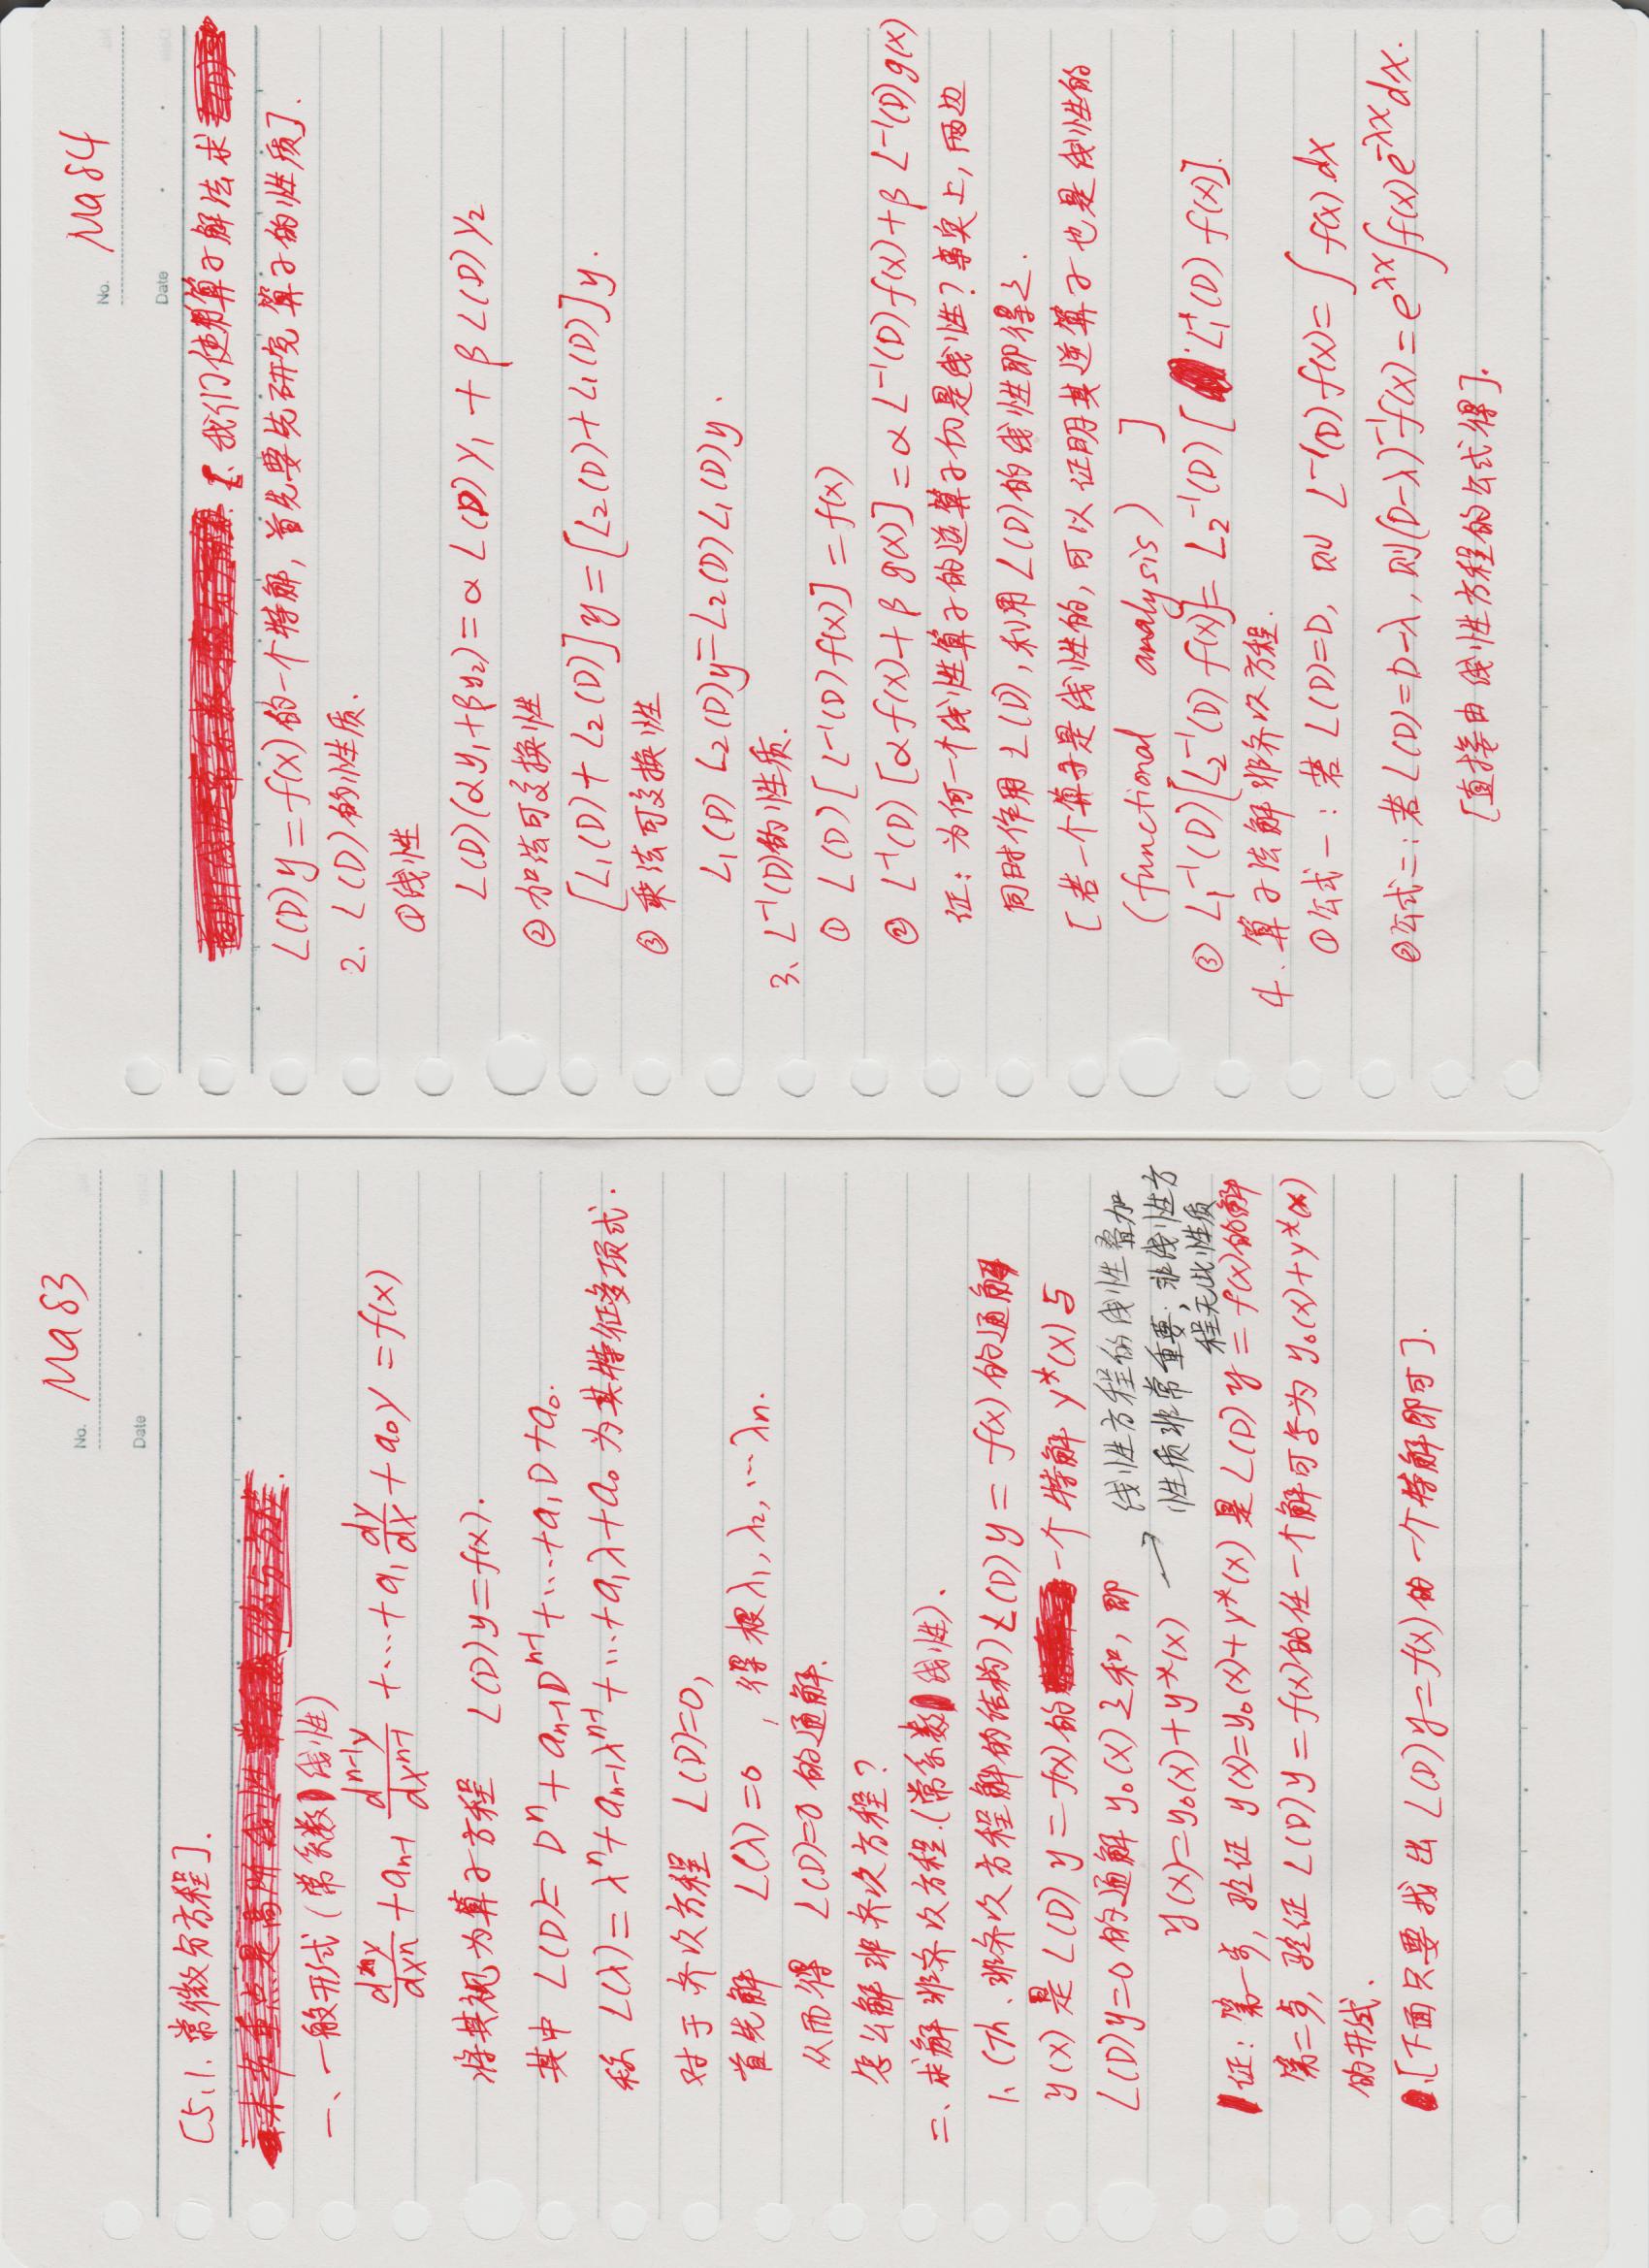 No. Ma83
Date
[5.1. 常微分方程].
本节重点是高阶线性常系数微分方程.
一、一般形式(常系数线性)
dⁿy/dxⁿ + aₙ₋₁ dⁿ⁻¹y/dxⁿ⁻¹ + ⋯ + a₁ dy/dx + a₀y = f(x)
将其视为算子方程 L(D)y=f(x).
其中 L(D)= Dⁿ + aₙ₋₁Dⁿ⁻¹ + ⋯ + a₁D + a₀.
称 L(λ)= λⁿ + aₙ₋₁λⁿ⁻¹ + ⋯ + a₁λ + a₀ 为其特征多项式.
对于齐次方程 L(D)=0,
首先解 L(λ)=0 , 得根λ₁, λ₂, ⋯ λₙ.
从而得 L(D)=0 的通解.
怎么解非齐次方程?
二、求解非齐次方程.(常系数线性).
1、(Th、非齐次方程解的结构) L(D)y = f(x) 的通解
y(x) 是 L(D) y = f(x) 的一个特解 y*(x) 与
L(D)y=0 的通解 y₀(x) 之和, 即
y(x)=y₀(x)+y*(x) →
线性方程的线性叠加
性质非常重要; 非线性方
程无此性质
证: 第一步, 验证 y(x)=y₀(x)+y*(x) 是 L(D) y = f(x) 的解
第二步, 验证 L(D)y = f(x) 的任一个解可写为 y₀(x)+y*(x)
的形式.
[下面只要找出 L(D)y=f(x) 的一个特解即可].
No. Ma84
Date
高阶线性常系数微分方程. [. 我们使用算子解法求
L(D)y = f(x) 的一个特解, 首先要先研究算子的性质].
2、L(D) 的性质.
①线性
L(D)(αy₁+βy₂)= α L(D)y₁ + β L(D)y₂
② 加法可交换性
[L₁(D)+ L₂(D)]y = [L₂(D)+L₁(D)]y.
③ 乘法可交换性
L₁(D) L₂(D)y=L₂(D)L₁(D)y.
3、L⁻¹(D)的性质.
① L(D)[L⁻¹(D) f(x)] = f(x)
② L⁻¹(D) [α f(x)+ β g(x)] = α L⁻¹(D) f(x)+ β L⁻¹(D) g(x)
证: 为何一个线性算子的逆算子仍是线性? 事实上, 两边
同时作用 L(D), 利用 L(D)的线性即得之.
[若一个算子是线性的, 可以证明其逆算子也是线性的
(functional analysis) ]
③ L₁⁻¹(D)[L₂⁻¹(D) f(x)]= L₂⁻¹(D) [L₁⁻¹(D) f(x)].
4、算子法解非齐次方程.
①公式一: 若 L(D)=D, 则 L⁻¹(D) f(x)= ∫ f(x) dx
②公式二: 若 L(D)=D-λ, 则(D-λ)⁻¹f(x) = e^{λx}∫f(x)e^{-λx}dx.
[直接由线性方程的公式得].